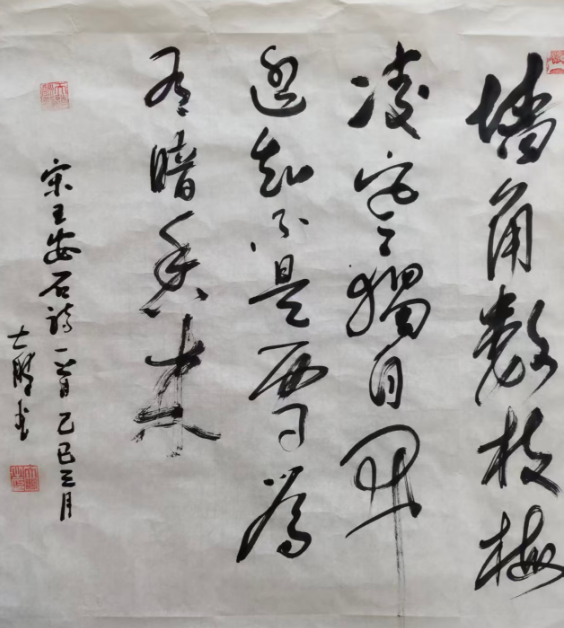 墙角数枝梅
凌寒獨自開
遥知不是雪為
有暗香来
宋王安石诗一首乙巳三月